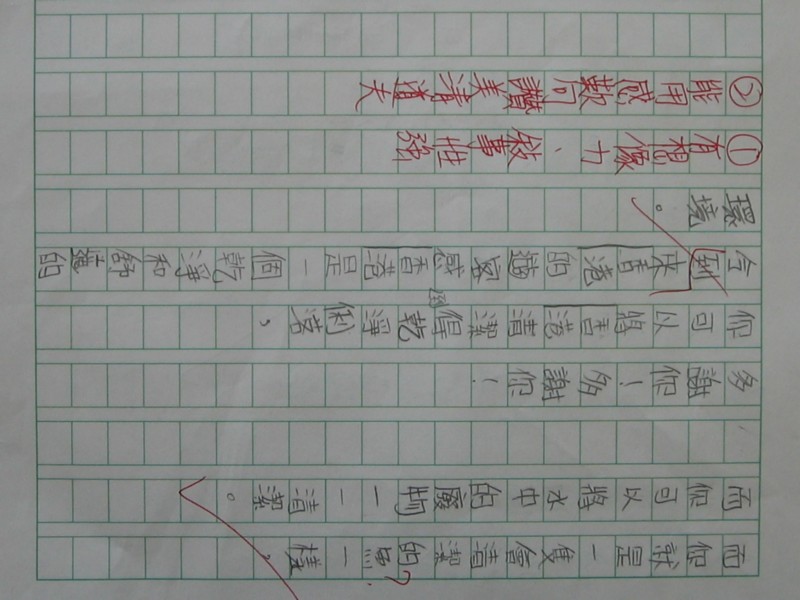 而你就是一隻會清潔的魚一樣，
而你可以將水中的廢物一一清潔。
多謝你！多謝你！
你可以將香港清潔得乾淨俐落，
令到來香港的遊客感到香港是一個乾淨和舒適的
環境。
①有想像力、敘事性強
②能用感歎句讚美清道夫